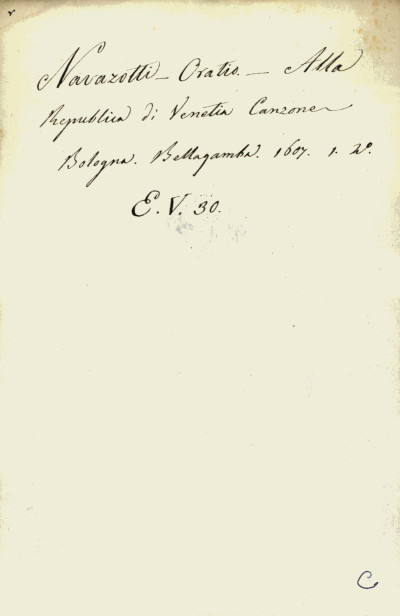 Navazotti – Oratio. – Alla
Republica di Venetia Canzone
Bologna. Bellagamba. 1607. 1. 2º.
E. V. 30.
C